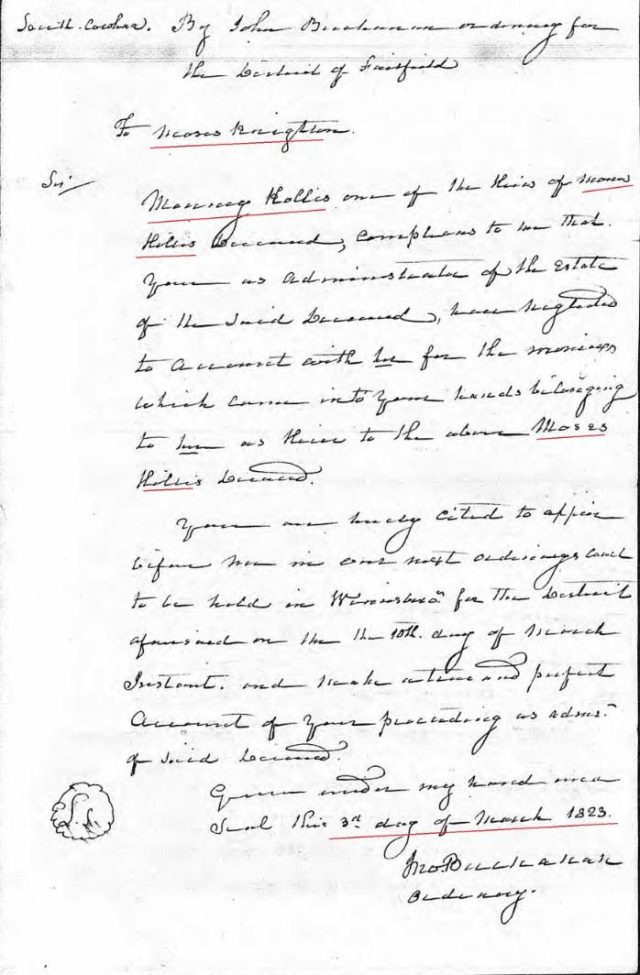 South Carolina. By John Buchanan ordinary for
the District of Fairfield
To Moses Knighton.
Sir
Hollis one of the Heirs of Moses
Hollis Deceased, complains to me that
you as Administrator of the Estate
of the said Deceased, have neglected
to account with her for the monies
which came into your hands belonging
to her as Heir to the above Moses
Hollis Deceased.
You are hereby cited to appear
before me in our next ordinarys court
to be held in Winnsboro for the District
aforesaid on the the 10th. day of March
Instant. and make a true and perfect
account of your proceeding as admr.
of said Deceased.
Given under my hand and
Seal this 3rd day of March 1823.
L.S.
Jno Buchanan
Ordinary.